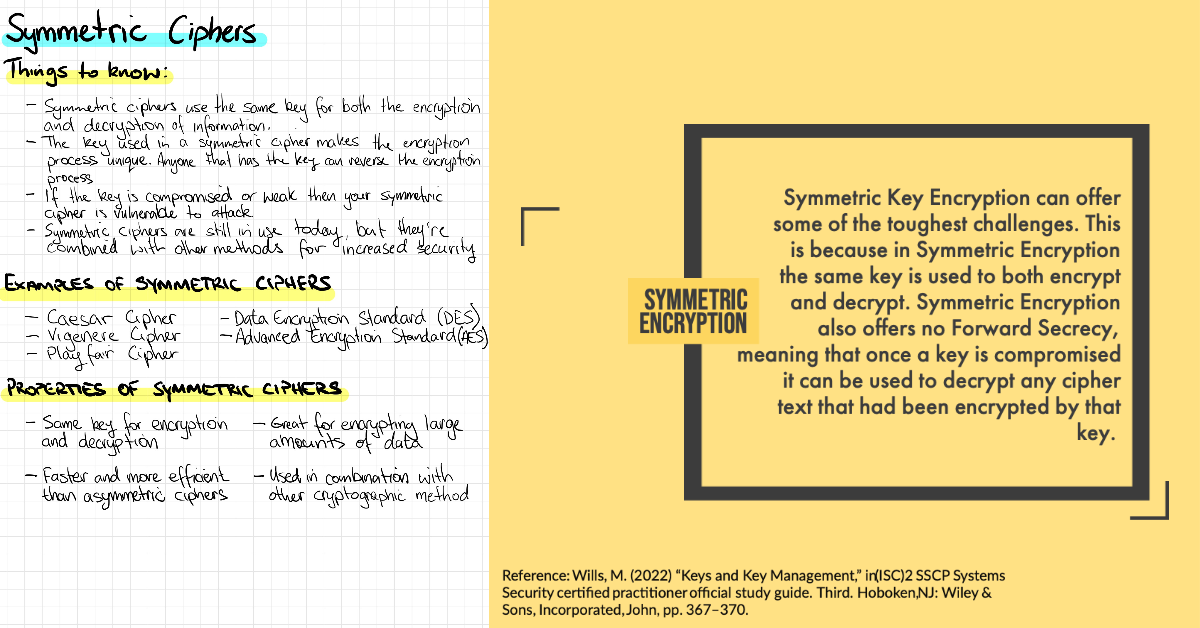 Symmetric Ciphers
Things to know:
- Symmetric ciphers use the same key for both the encryption
and decryption of information.
- The key used in a symmetric cipher makes the encryption
process unique. Anyone that has the key can reverse the encryption
process
- If the key is compromised or weak then your symmetric
cipher is vulnerable to attack
- Symmetric ciphers are still in use today, but they're
combined with other methods for increased security
EXAMPLES OF SYMMETRIC CIPHERS
- Caesar Cipher
- Vigenere Cipher
- Playfair Cipher
- Data Encryption Standard (DES)
- Advanced Encryption Standard (AES)
PROPERTIES OF SYMMETRIC CIPHERS
- Same key for encryption
and decryption
- Faster and more efficient
than asymmetric ciphers
- Great for encrypting large
amounts of data
- Used in combination with
other cryptographic method
SYMMETRIC
ENCRYPTION
Symmetric Key Encryption can offer
some of the toughest challenges. This
is because in Symmetric Encryption
the same key is used to both encrypt
and decrypt. Symmetric Encryption
also offers no Forward Secrecy,
meaning that once a key is compromised
it can be used to decrypt any cipher
text that had been encrypted by that
key.
Reference: Wills, M. (2022) “Keys and Key Management,” in(ISC)2 SSCP Systems
Security certified practitioner official study guide. Third. Hoboken,NJ: Wiley &
Sons, Incorporated, John, pp. 367–370.